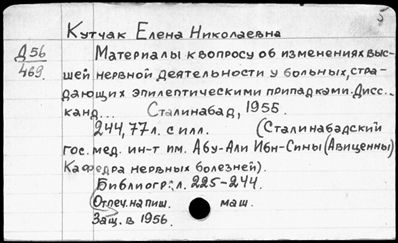 5
Кутчак Елена Николаевна
Д56
469.
Материалы к вопросу об изменениях выс-
шей нервной деятельности у больных, стра-
дающих эпилептическими припадками. Дисс.
канд... Сталинабад, 1955.
244, 77 л. с илл. (Сталинабадский
гос. мед. ин-т им. Абу-Али Ибн-Сины (Авиценны)
Кафедра нервных болезней).
Библиогр: л. 225-244.
Отпеч. на пиш. маш.
Защ. в 1956.